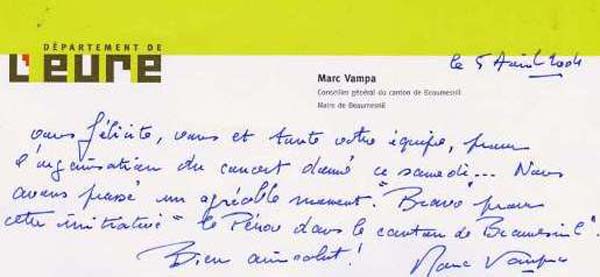 DÉPARTEMENT DE
L'eure
le 5 Avril 2004
Marc Vampa
Conseiller général du canton de Beaumesnil
Maire de Beaumesnil
vous félicite, vous et toute votre équipe, pour
l'organisation du concert donné ce samedi... Nous
avons passé un agréable moment. "Bravo" pour
cette initiative "le Pérou dans le canton de Beaumesnil".
Bien amicalement!
Marc Vampa